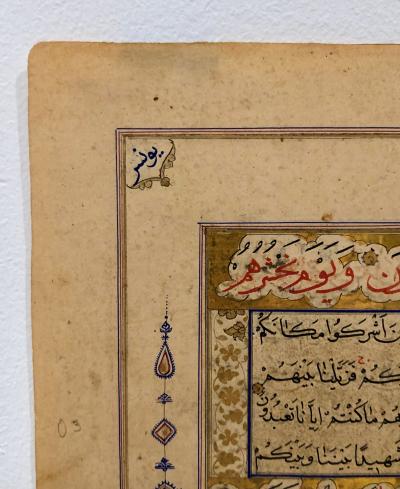 يونس
ن وَيَوْمَ نَحْشُرُهُمْ
أَشْرَكُوا مَكَانَكُمْ
كُمْ فَزَيَّلْنَا بَيْنَهُمْ
هُمْ مَا كُنْتُمْ إِيَّانَا تَعْبُدُونَ
شَهِيدًا بَيْنَنَا وَبَيْنَكُمْ
03